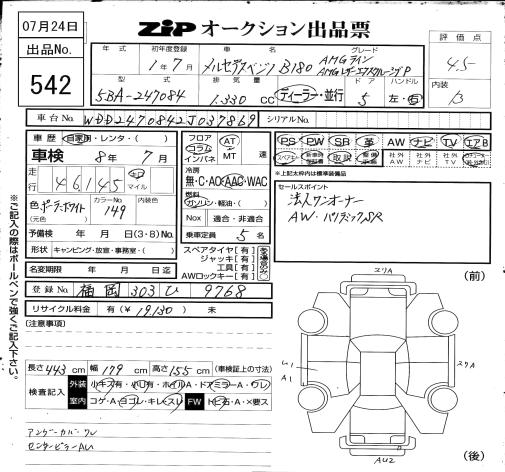 07月24日
出品No.
542
ZIP オークション出品票
評価点
4.5
内装
B
年式 初年度登録 車名 グレード
1年7月 メルセデスベンツ B180 AMGライン
AMGレザーエクスクルーシブP
型式 排気量 ドア ハンドル
5BA-247084 1.330 CC ディーラー・並行 5 左・右
車台No. W1D2470842J037869 シリアルNo.
車歴 自家用・レンタ・( )
車検 8年 7月
走行 46145 キロ マイル
色 ポーラーホワイト カラーNo. 149 内装色
(元色)
予備検 年 月 日(3・8)No.
形状 キャンピング・放宣・事務室・( )
名変期限 年 月 日迄
フロア コラム インパネ AT MT 速
冷房
無・C・AC・AAC・WAC
燃料
ガソリン・軽油・( )
Nox 適合・非適合
乗車定員 5 名
スペアタイヤ[有]
ジャッキ[有]
工具[有]
AWロックキー[有]
PS PW SR 革 AW ナビ TV エアB
スペアキー 取説 社外AW 社外ナビ 社外TV
*上記太枠内は標準装備品
セールスポイント
法人ワンオーナー
AW、パノラミックSR
登録No. 福岡 303 ひ 9768
リサイクル料金 有(¥19,130) 未
(注意事項)
※ご記入の際はボールペンで強くご記入下さい。
長さ 443 cm 幅 179 cm 高さ 155 cm (車検証上の寸法)
検査記入 外装 小キズ有・小凹有・ホイルA・ドアミラーA・ワレ
室内 コゲ・A・ヨゴレ・キレ・スレ FW トビ石・A・×要ス
アンダーカバーワレ
センターピラーAU
(前)
スリA
スリA
A1
AU2
(後)